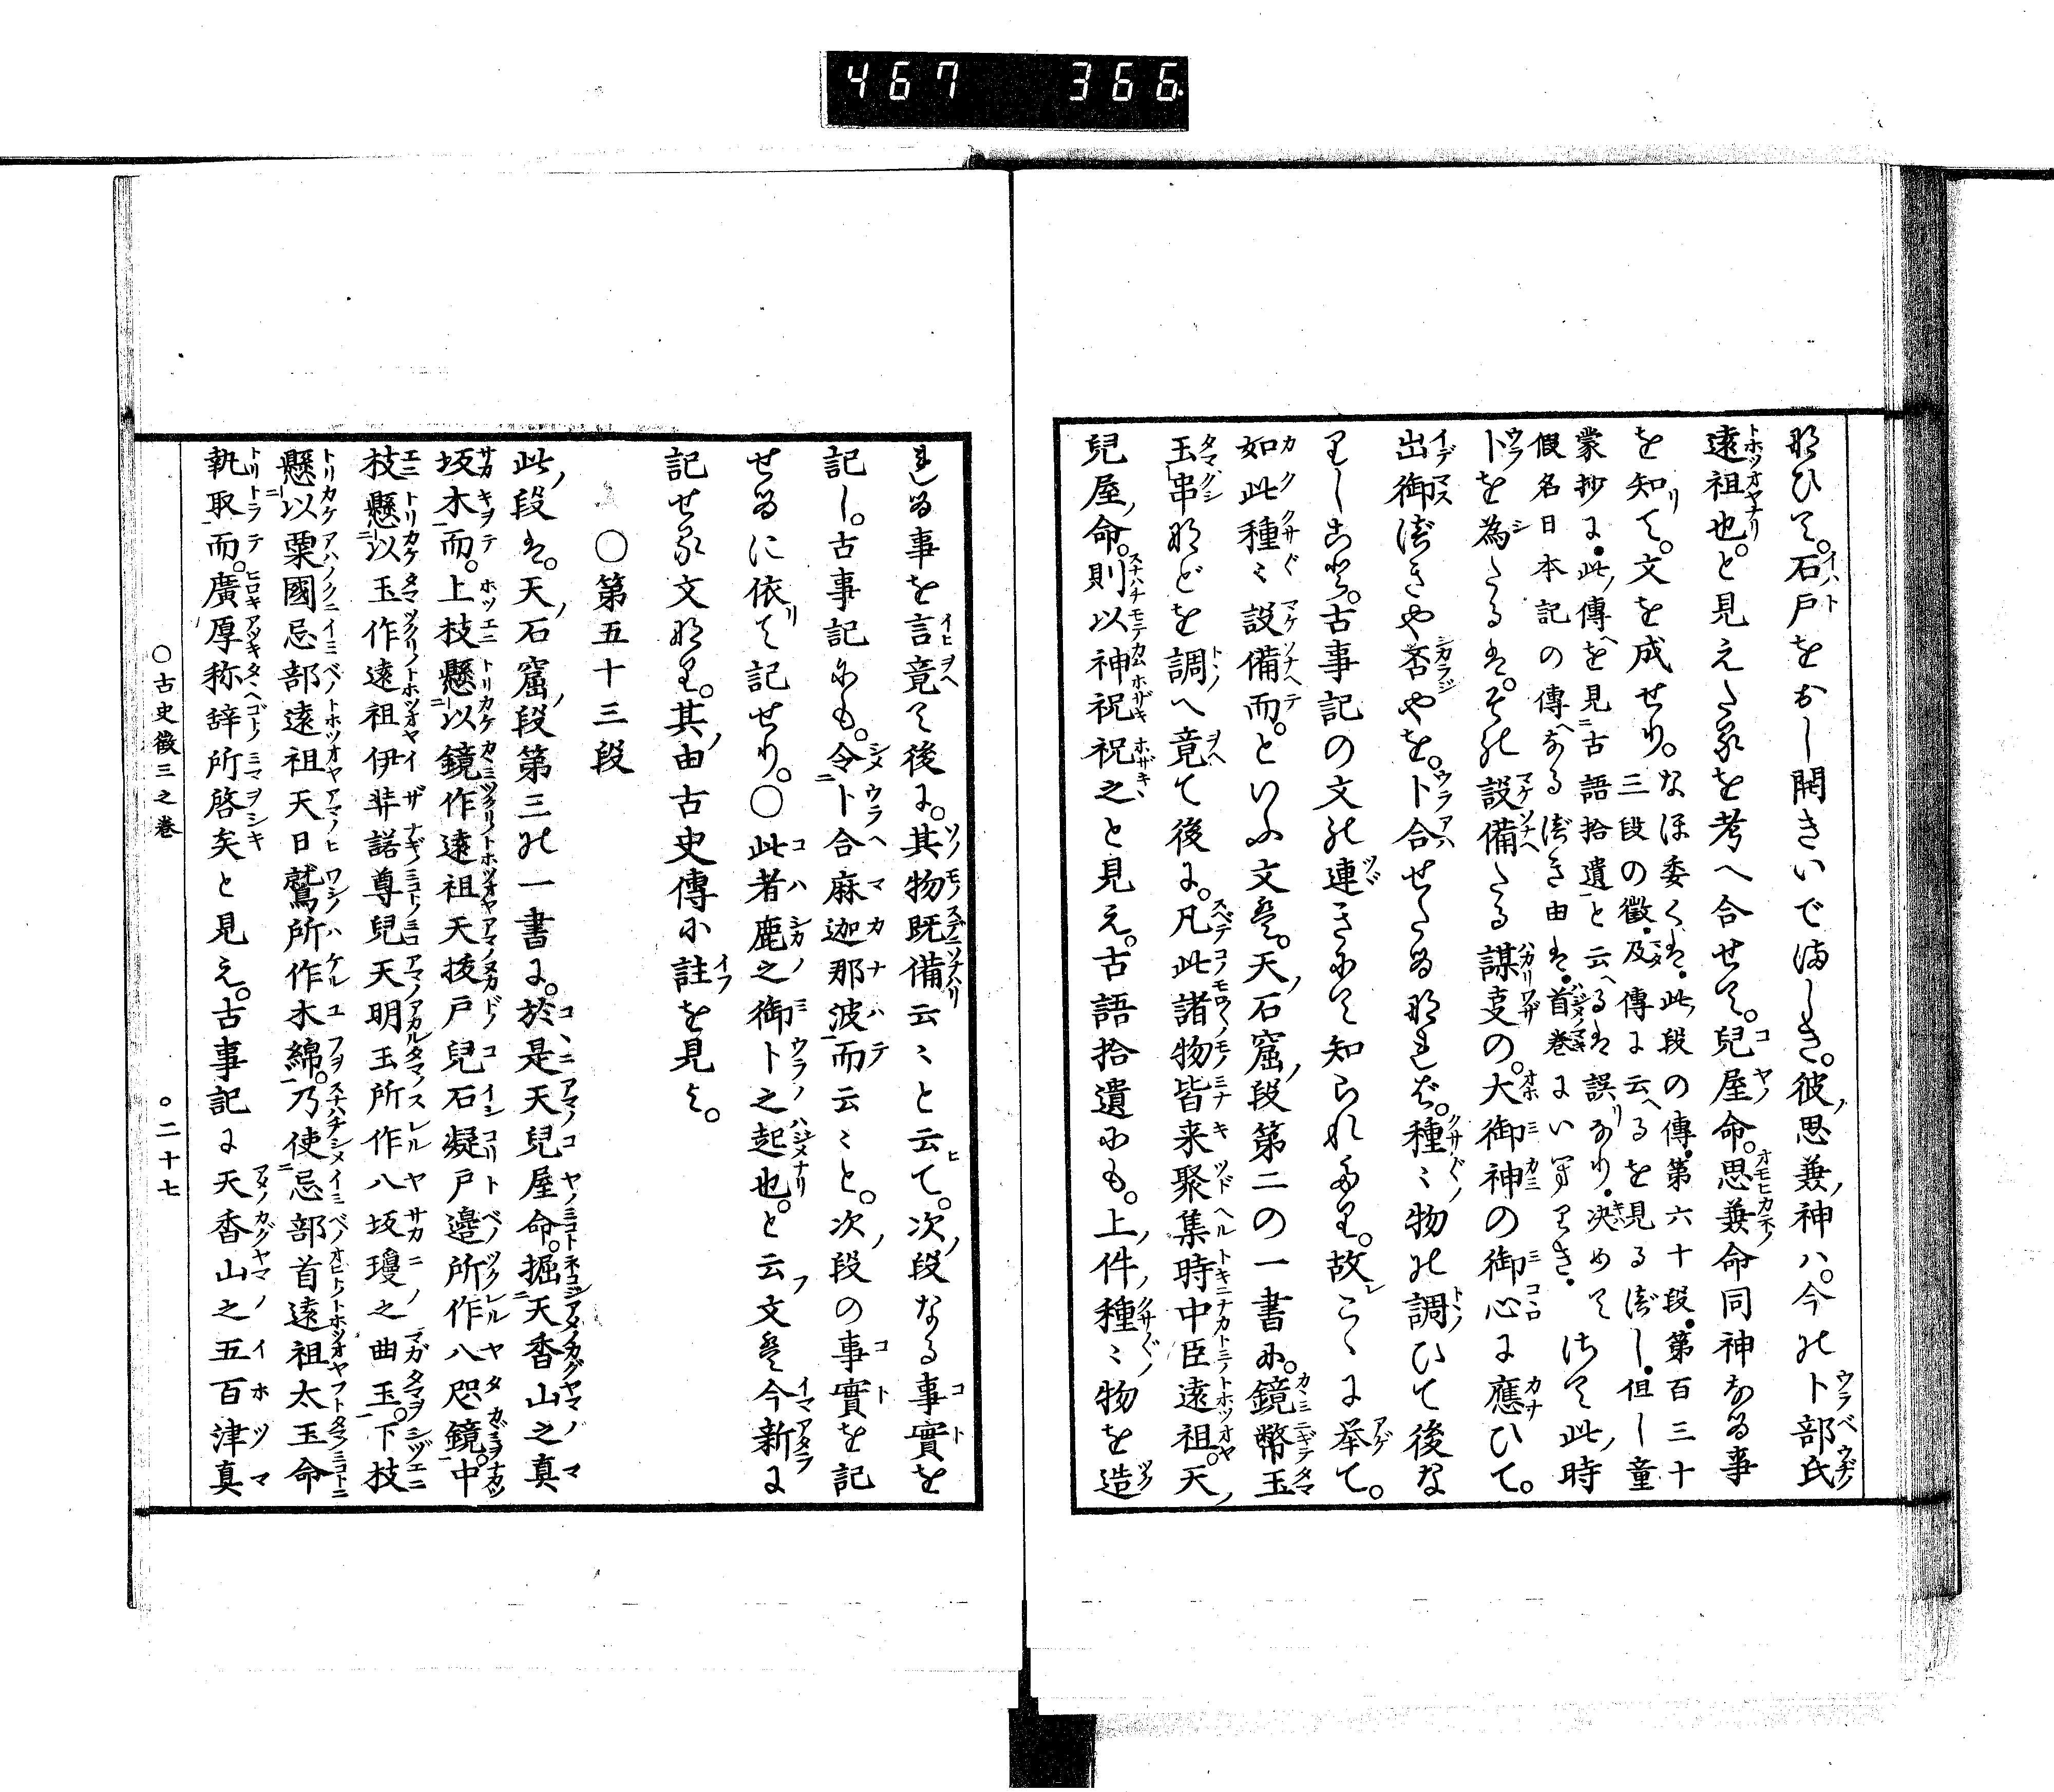 467 366
ねひて。石戸をおし開きいでましき。彼思兼神ハ。今の卜部氏
遠祖也。と見えたるを考へ合せて。兒屋命。思兼命同神なる事
を知て。文を成せり。なほ委くは。此段の傳。第六十段。第百三十
三段の徵。及傳に云へるを見るべし。但し童
蒙抄に。此傳へを見古語拾遺と云へるは誤なり。决めて
假名日本記の傳へなるべき由は。首巻にいへりき。
さて此時
卜を為たるは。その設備たる謀叓の。大御神の御心に應ひて。
出御べきや否やを。卜合せたるなれば。種〻物の調ひて後な
りしこと。古事記の文の連きにて知られたり。故こゝに举て。
如此種〻設備而。といふ文は。天石窟段第二の一書に。鏡幣玉
玉串などを調へ竟て後に。凡此諸物皆来聚集時中臣遠祖。天
兒屋命。則以神祝祝之と見え。古語拾遺にも。上件種〻物を造
れる事を言竟て後に。其物既備云〻と云て。次段なる事實を
記し。古事記にも。令卜合麻迦那波而云〻と。次段の事實を記
せるに依て記せり。○此者鹿之御卜之起也。と云文は今新に
記せる文なり。其由古史傳に註を見よ。
○第五十三段
此段は。天石窟段第三の一書に。於是天兒屋命。掘天香山之真
坂木而。上枝懸以鏡作遠祖天抜戸兒石凝戸邉所作八咫鏡。中
枝懸以玉作遠祖伊弉諾尊兒天明玉所作八坂瓊之曲玉。下枝
懸以粟國忌部遠祖天日鷲所作木綿。乃使忌部首遠祖太玉命
執取而。廣厚称辞所啓矣と見え。古事記に天香山之五百津真
○古史徵三之巻 ○二十七